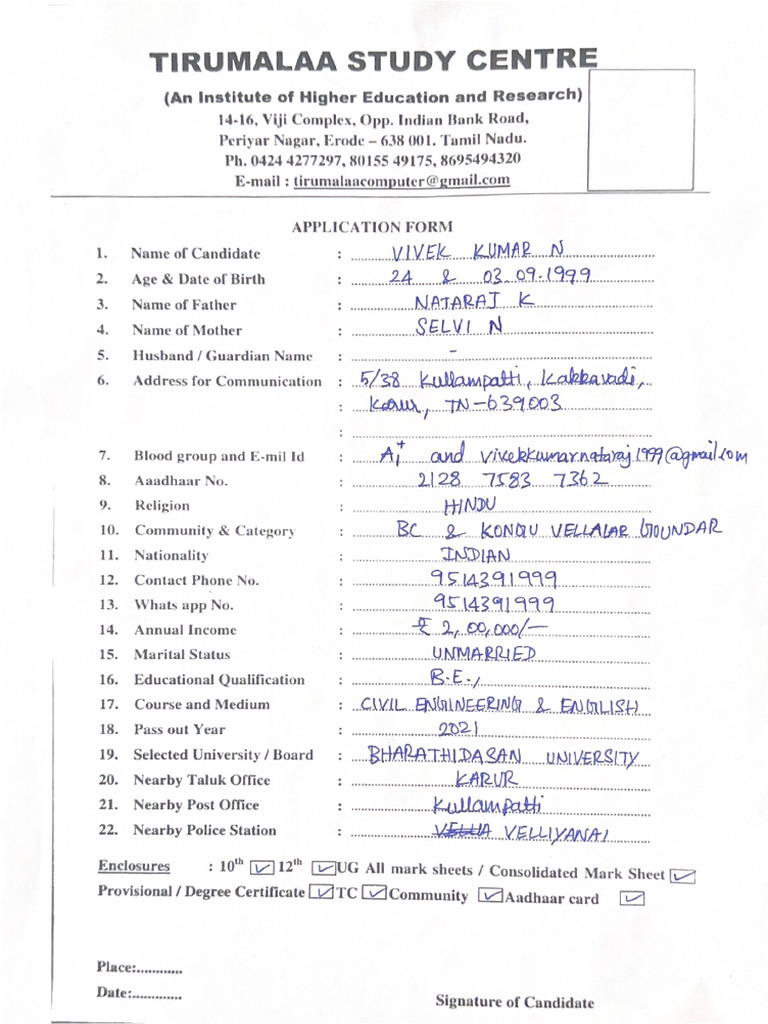 TIRUMALAA STUDY CENTRE
(An Institute of Higher Education and Research)
14-16, Viji Complex, Opp. Indian Bank Road,
Periyar Nagar, Erode – 638 001. Tamil Nadu.
Ph. 0424 4277297, 80155 49175, 8695494320
E-mail : tirumalaacomputer@gmail.com
APPLICATION FORM
1. Name of Candidate : VIVEK KUMAR N
2. Age & Date of Birth : 24 & 03.09.1999
3. Name of Father : NATARAJ K
4. Name of Mother : SELVI N
5. Husband / Guardian Name : -
6. Address for Communication : 5/38 Kullampatti, Kakkavadi,
: Karur, TN-639003
:
7. Blood group and E-mil Id : A1+ and vivekkumarnataraj1999@gmail.com
8. Aaadhaar No. : 2128 7583 7362
9. Religion : HINDU
10. Community & Category : BC & KONGU VELLALAR GOUNDAR
11. Nationality : INDIAN
12. Contact Phone No. : 9514391999
13. Whats app No. : 9514391999
14. Annual Income : ₹ 2,00,000/-
15. Marital Status : UNMARRIED
16. Educational Qualification : B.E.,
17. Course and Medium : CIVIL ENGINEERING & ENGLISH
18. Pass out Year : 2021
19. Selected University / Board : BHARATHIDASAN UNIVERSITY
20. Nearby Taluk Office : KARUR
21. Nearby Post Office : Kullampatti
22. Nearby Police Station : VELLIYANAI
Enclosures : 10th ✓ 12th ✓ UG All mark sheets / Consolidated Mark Sheet ✓
Provisional / Degree Certificate ✓ TC ✓ Community ✓ Aadhaar card ✓
Place:............
Date:.............
Signature of Candidate